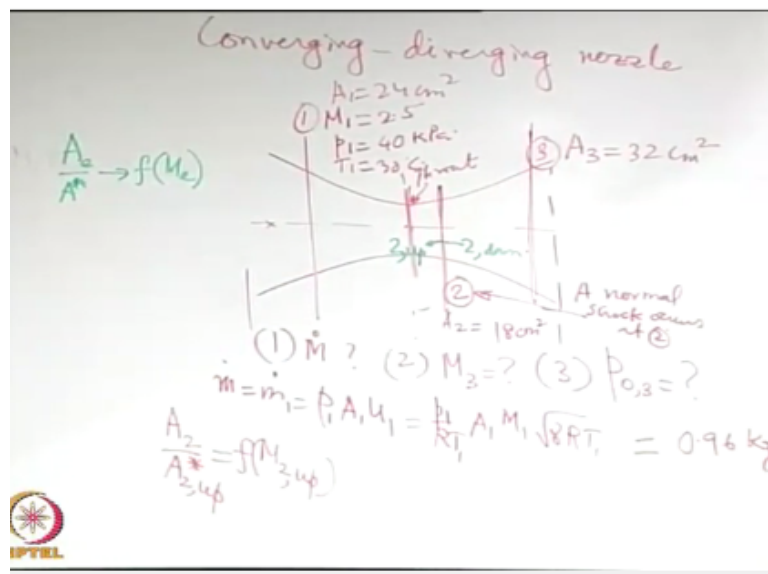 Converging-diverging nozzle
A₁ = 24 cm²
① M₁ = 2.5
p₁ = 40 kPa
T₁ = 30
③ A₃ = 32 cm²
A_e/A* → f(M_e)
2,up
2,dwn
②
A₂ = 18 cm²
A normal
shock occurs
at ②
(1) ṁ ? (2) M₃ = ? (3) p₀,₃ = ?
ṁ = ṁ₁ = ρ₁ A₁ u₁ = p₁/RT₁ A₁ M₁ √γRT₁ = 0.96 kg
A₂/A*₂,up = f(M₂,up)
NPTEL